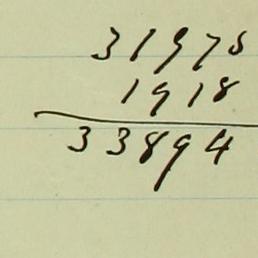 31976
1918
33894